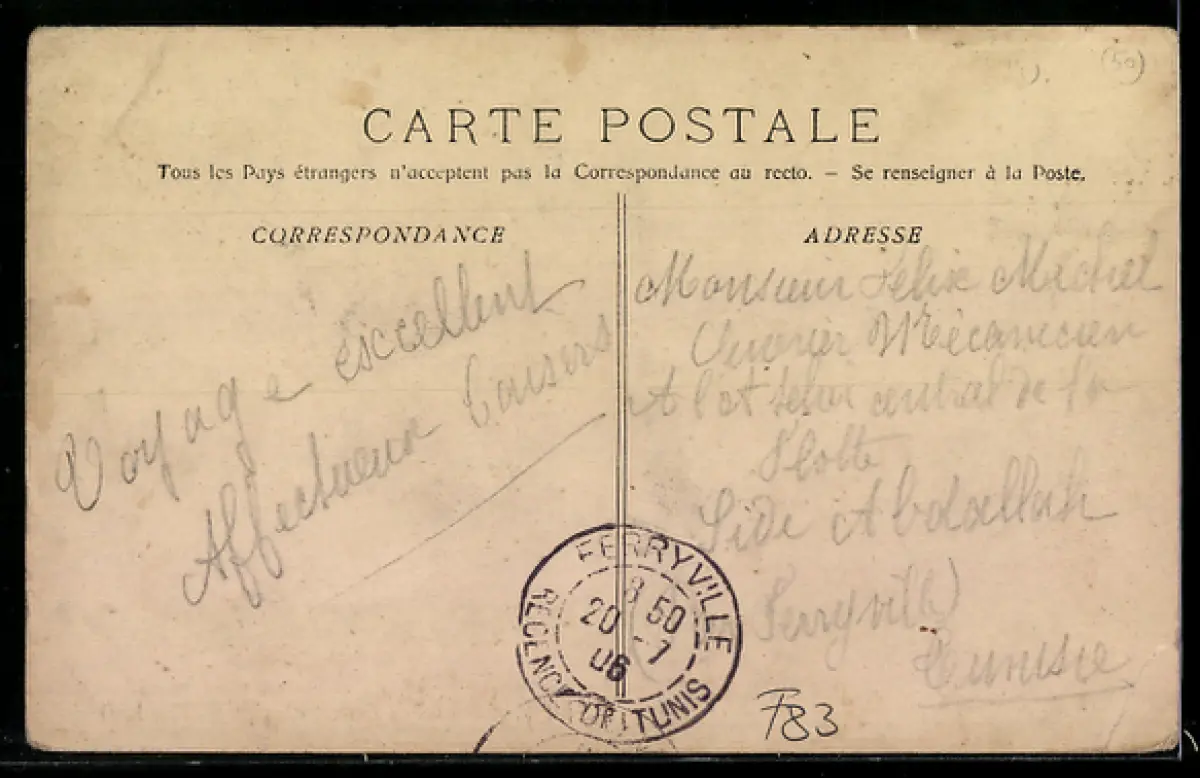 (50)
CARTE POSTALE
Tous les Pays étrangers n'acceptent pas la Correspondance au recto. — Se renseigner à la Poste.
CORRESPONDANCE
Voyage excellent
Affectueux baisers
ADRESSE
Monsieur Felix Michel
Ouvrier Mécanicien
A l'Atelier central de la
Flotte
Sidi Abdallah
Ferryville
Tunisie
FERRYVILLE
8 50
20 - 7
06
REGENCE DE TUNIS
F83